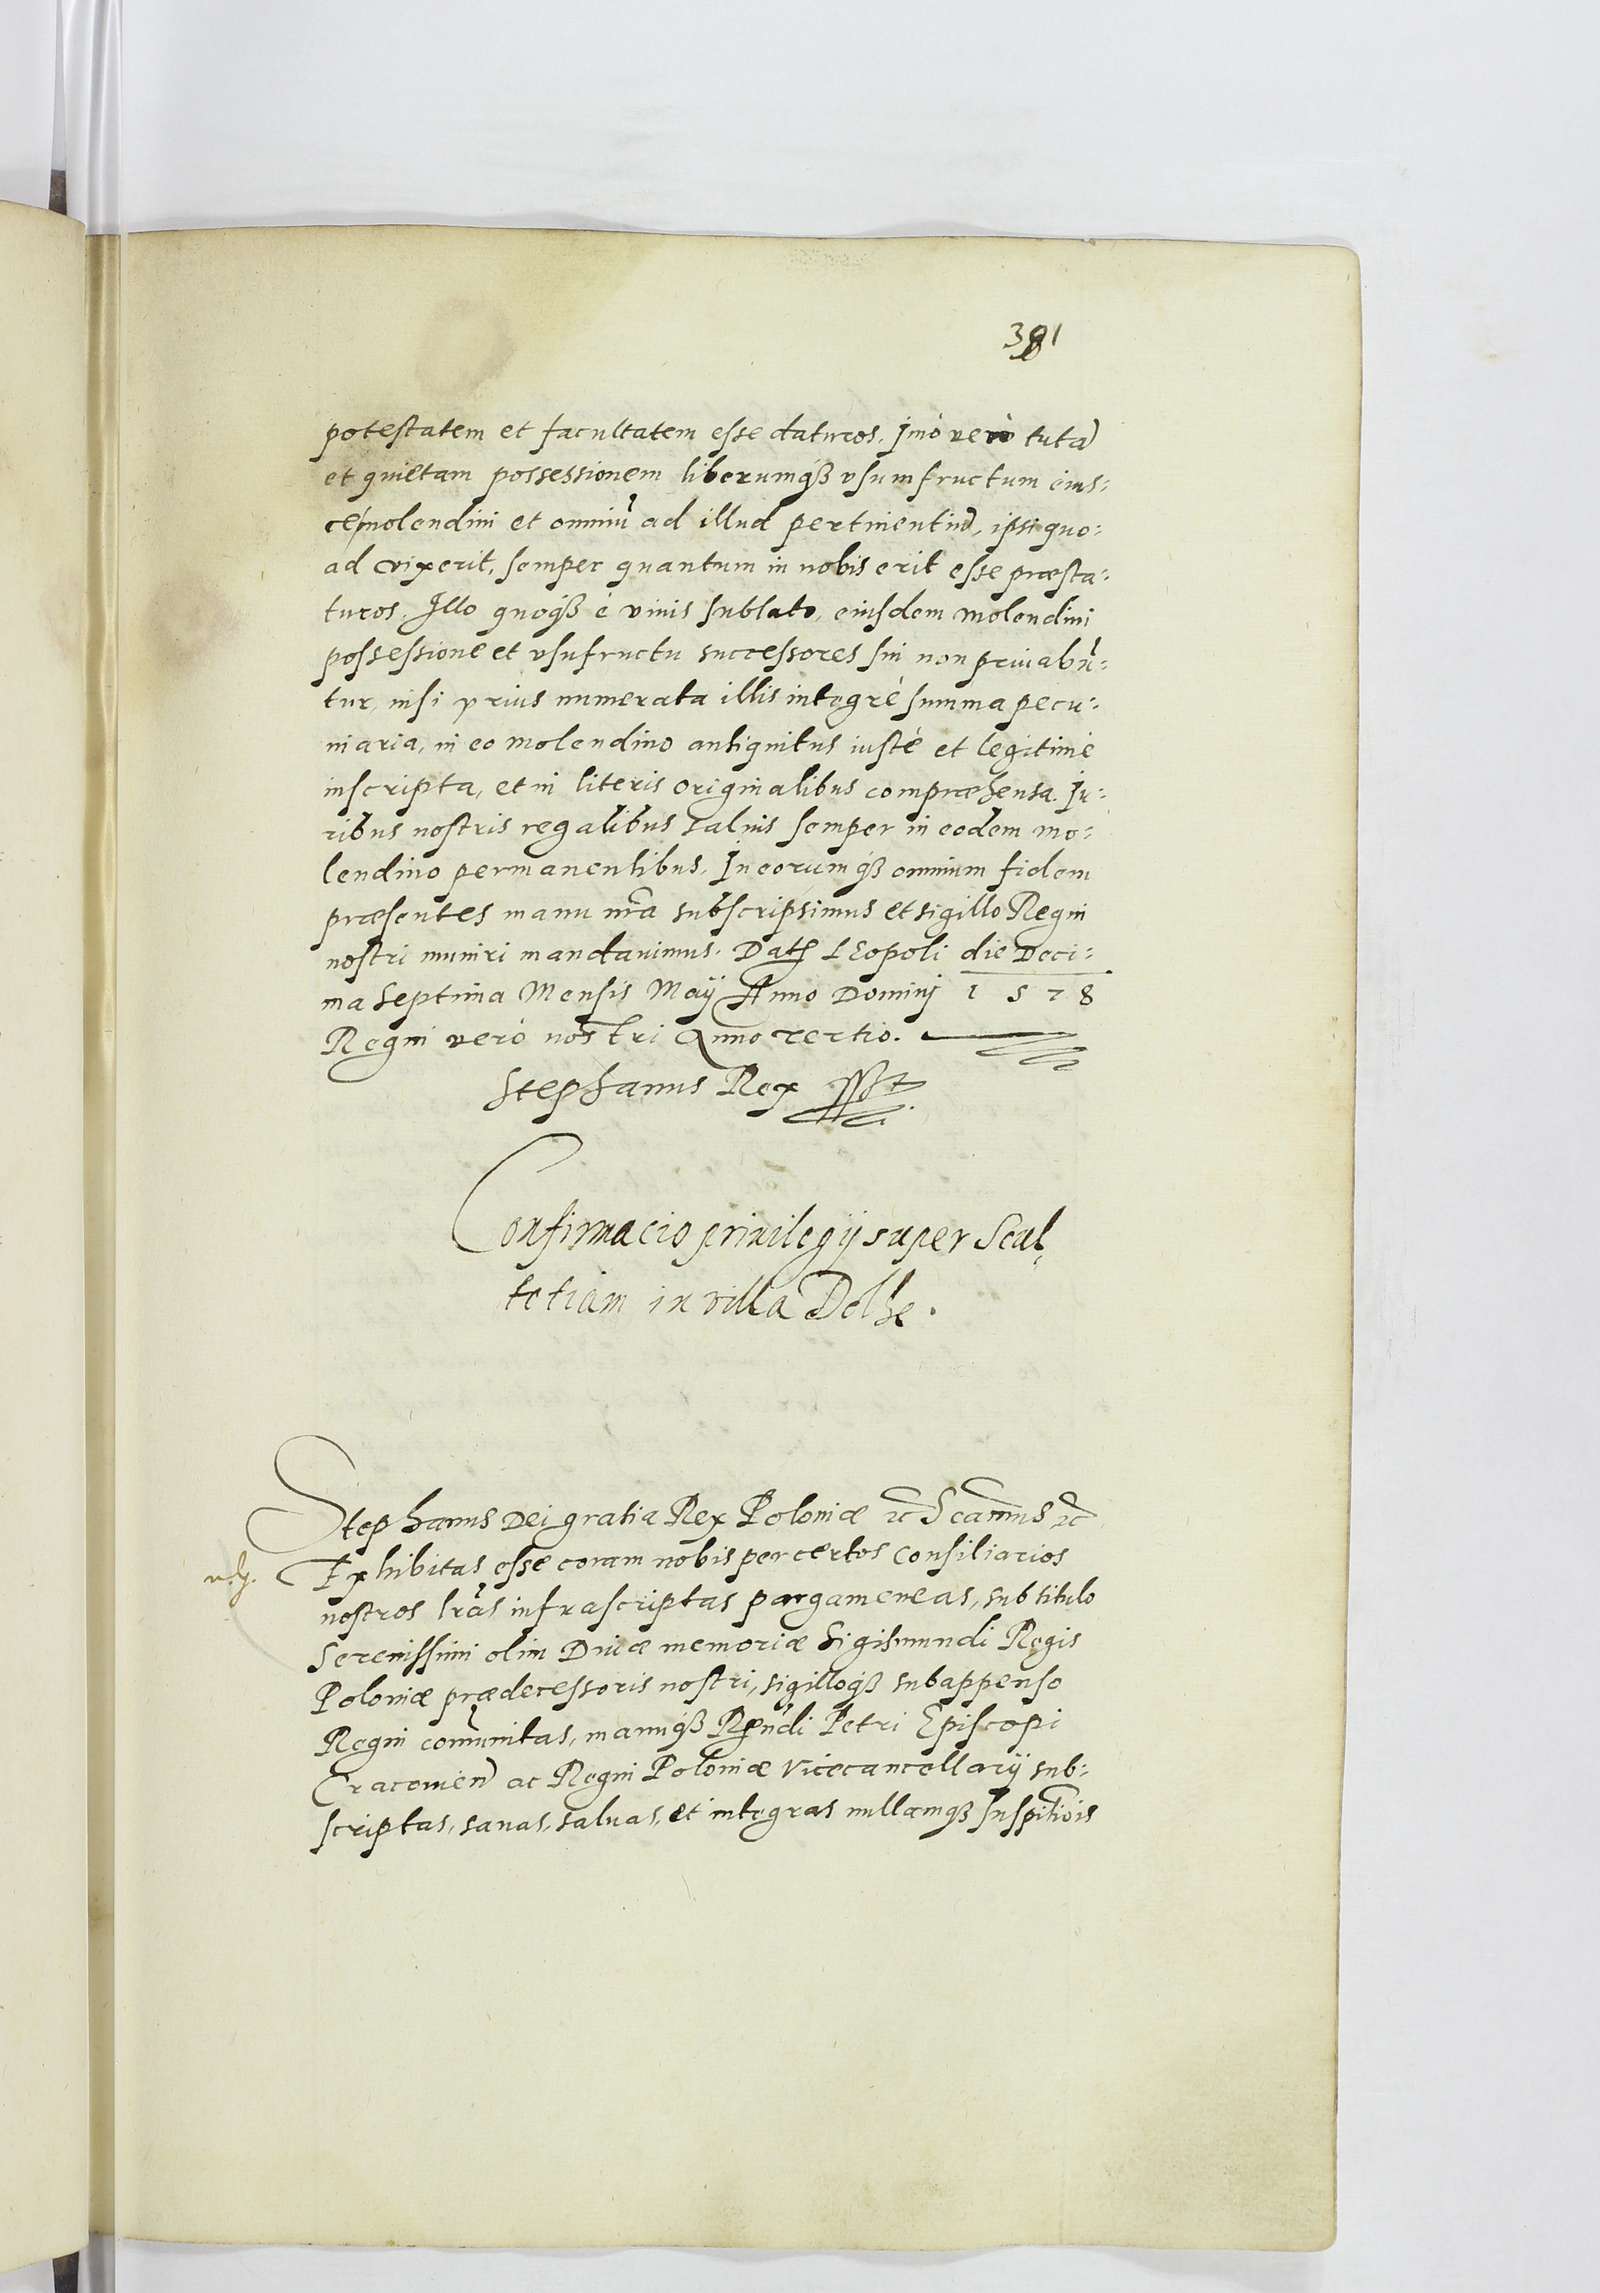 391
potestatem et facultatem esse daturos. Imò verò tutā
et quietam possessionem liberumqȝ vsumfructum eius=
ce molendini et omniū ad illud pertinentiū, ipsi quo=
ad vixerit, semper quantum in nobis erit esse præsta=
turos. Illo quoqȝ è viuis sublato, eiusdem molendini
possessione et vsufructu successores sui non priuabū=
tur, nisi prius numerata illis integrè summa pecu=
niaria, in eo molendino antiquitus iustè et legitimè
inscripta, et in literis originalibus compræhensa. Iu=
ribus nostris regalibus saluis semper in eodem mo=
lendino permanentibus. In eorumqȝ omnium fidem
præsentes manu nrā subscripsimus et sigillo Regni
nostri muniri mandauimus. Dat. Leopoli die Deci=
ma septima Mensis Maij Anno Domini 1578
Regni verò nostri Anno tertio.
Stephanus Rex sst
Confirmacio priuilegij super Scul=
tetiam in villa Dolhe.
Stephanus Dei gratia Rex Poloniæ etc
Exhibitas esse coram nobis per certos Consiliarios
nostros lrās infrascriptas pargameneas, sub titulo
Serenissimi olim Diuæ memoriæ Sigismundi Regis
Poloniæ prædecessoris nostri, sigilloqȝ subappenso
Regni com̄unitas, manuqȝ Rn̄di Petri Episcopi
Cracouien̄ ac Regni Poloniæ Vicecancellarij sub=
scriptas, sanas, saluas, et integras nullæmqȝ suspitiōis